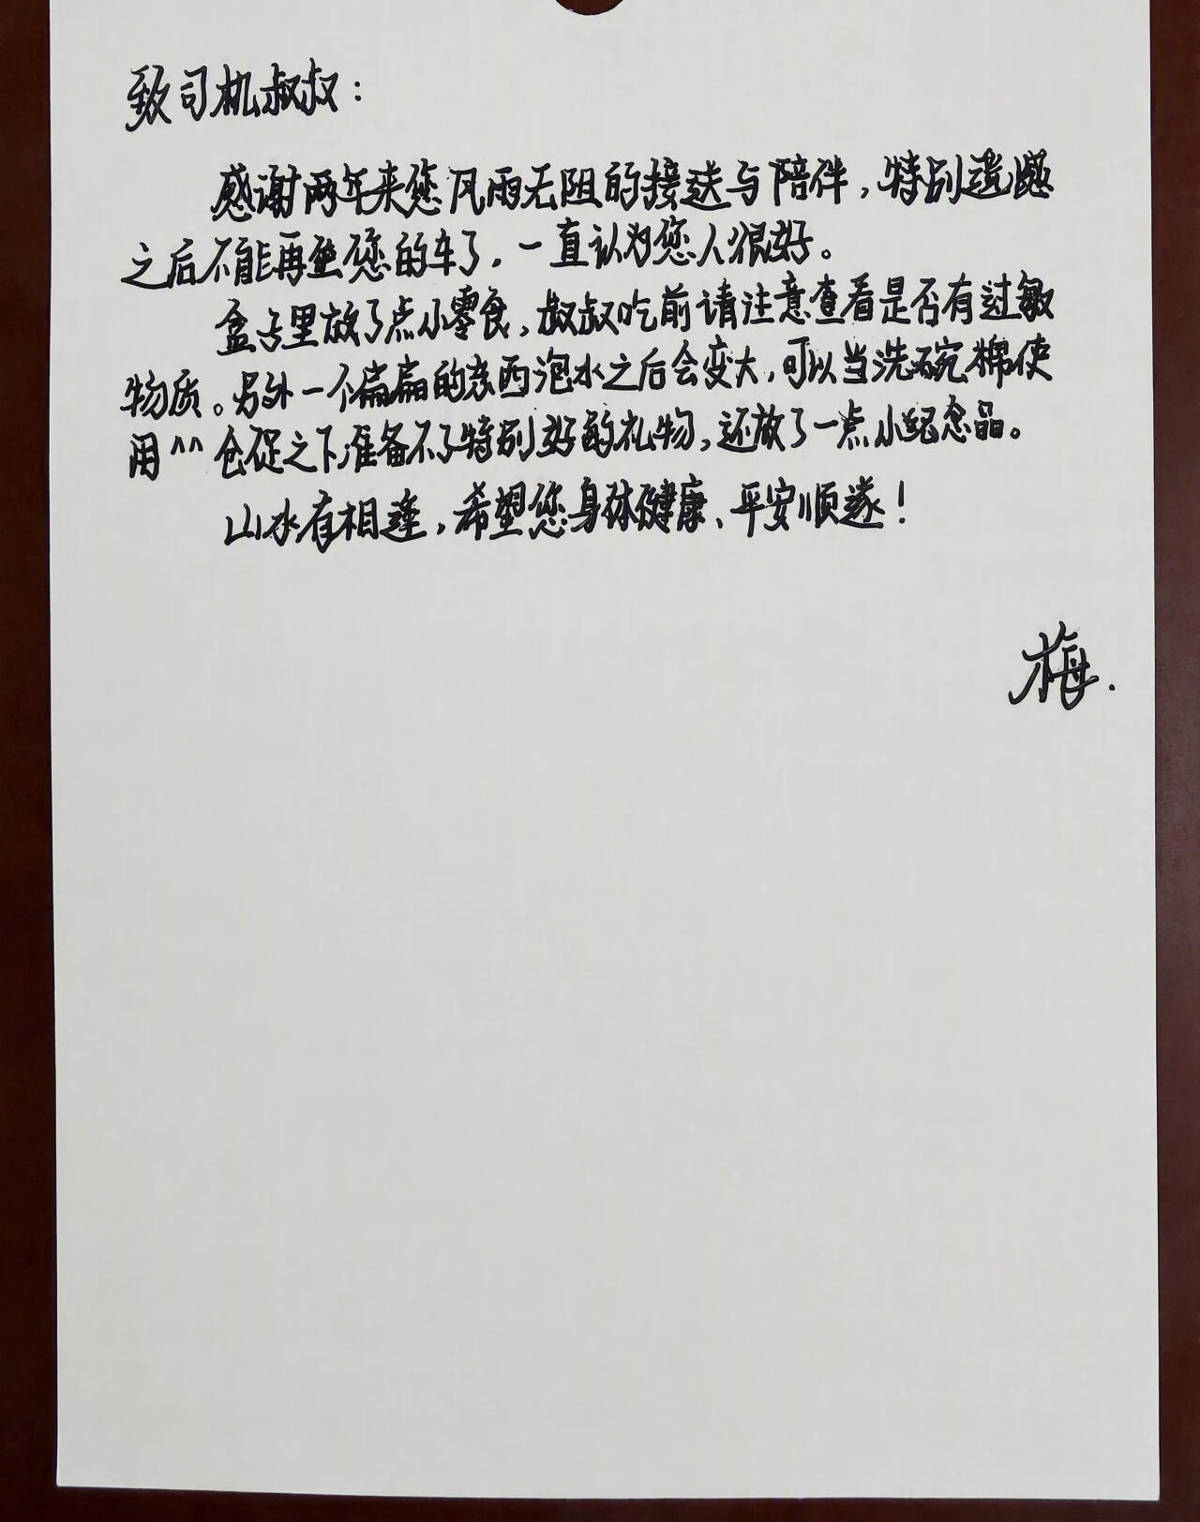 致司机叔叔：
感谢两年来您风雨无阻的接送与陪伴，特别遗憾
之后不能再坐您的车了，一直认为您人很好。
盒子里放了点小零食，叔叔吃前请注意查看是否有过敏
物质。另外一个扁扁的东西泡水之后会变大，可以当洗碗棉使
用^^仓促之下准备不了特别好的礼物，还放了一点小纪念品。
山水有相逢，希望您身体健康、平安顺遂！
梅.